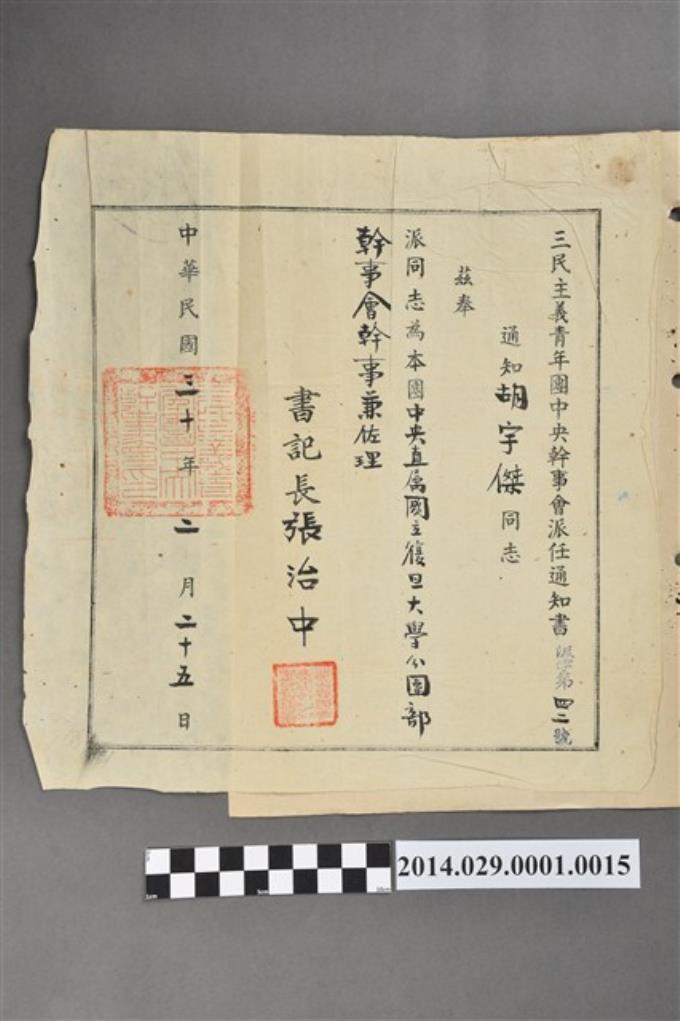 三民主義青年團中央幹事會派任通知書 第四二號
通知胡宇傑同志
茲奉
派同志為本團中央直属國立復旦大學分團部
幹事會幹事兼佐理
書記長張治中
中華民國三十年二月二十五日
2014.029.0001.0015